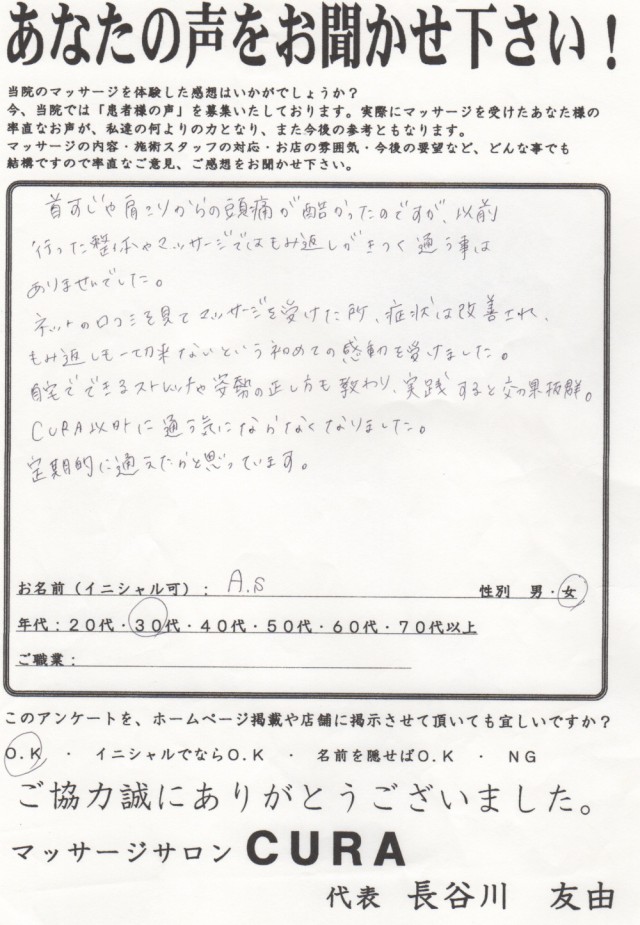 あなたの声をお聞かせ下さい！
当院のマッサージを体験した感想はいかがでしょうか？
今、当院では「患者様の声」を募集いたしております。実際にマッサージを受けたあなた様の
率直なお声が、私達の何よりの力となり、また今後の参考ともなります。
マッサージの内容・施術スタッフの対応・お店の雰囲気・今後の要望など、どんな事でも
結構ですので率直なご意見、ご感想をお聞かせ下さい。
首すじや肩こりからの頭痛が酷かったのですが、以前
行った整体やマッサージではもみ返しがきつく通う事は
ありませんでした。
ネットの口コミを見てマッサージを受けた所、症状は改善され、
もみ返しも一切来ないという初めての感動を受けました。
自宅でできるストレッチや姿勢の正し方も教わり、実践すると効果抜群。
CURA以外に通う気にならなくなりました。
定期的に通えたらと思っています。
お名前（イニシャル可）： A.S 性別 男・女
年代：20代・30代・40代・50代・60代・70代以上
ご職業：
このアンケートを、ホームページ掲載や店舗に掲示させて頂いても宜しいですか？
O.K ・ イニシャルでならO.K ・ 名前を隠せばO.K ・ NG
ご協力誠にありがとうございました。
マッサージサロン CURA
代表 長谷川 友由